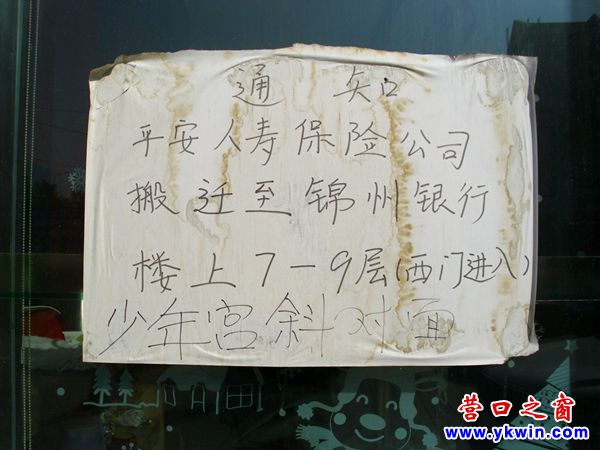 通知
平安人寿保险公司
搬迁至锦州银行
楼上7-9层(西门进入)
少年宫斜对面
营口之窗
www.ykwin.com